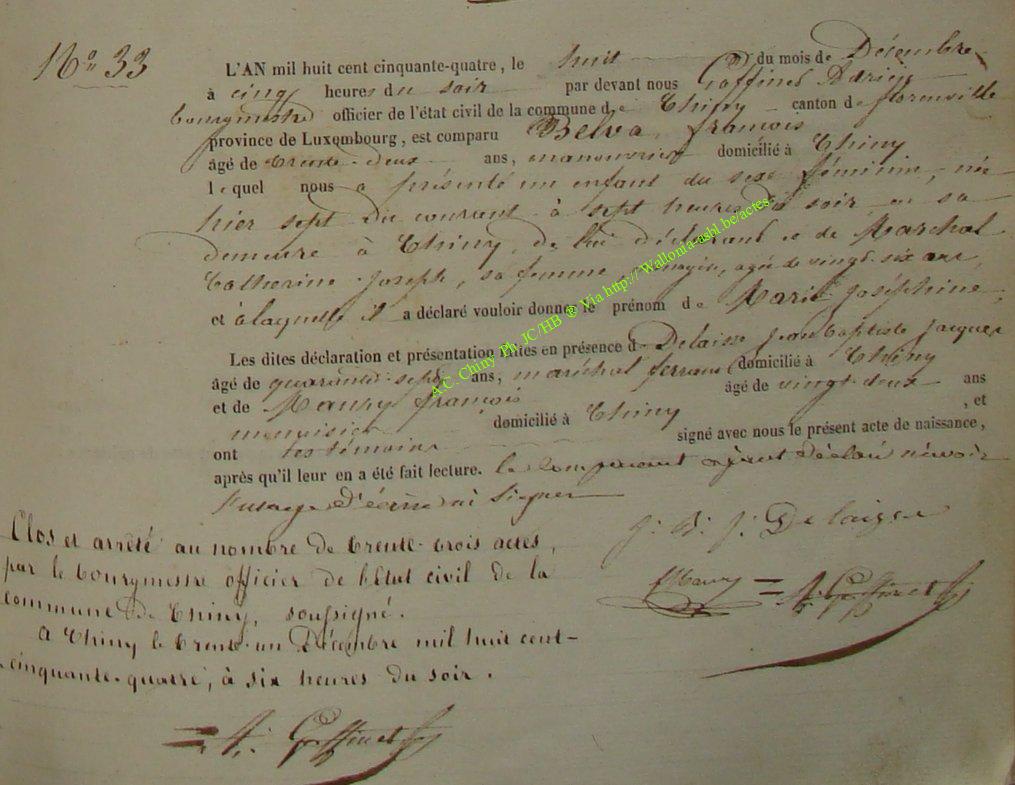 N° 33
L'AN mil huit cent cinquante-quatre, le huit du mois de Décembre
à cinq heures du soir par devant nous Goffinet Adrien
bourgmestre officier de l'état civil de la commune de Chiny canton de florenville
province de Luxembourg, est comparu Belva françois
âgé de trente-deux ans, manouvrier domicilié à Chiny
lequel nous a présenté un enfant du sexe féminin, née
hier sept du courant à sept heures du soir en sa
demeure à Chiny, de lui déclarant et de Marchal
Catherine Joseph, sa femme, ménagère, agée de vingt-six ans,
et à laquelle il a déclaré vouloir donner le prénom de Marie Joséphine,
Les dites déclaration et présentation faites en présence de Delaisse Jean Baptiste Jacques
âgé de quarante-sept ans, maréchal ferrant domicilié à Chiny
et de Maury françois âgé de vingt-deux ans
menuisier domicilié à Chiny , et
ont les témoins signé avec nous le présent acte de naissance,
après qu'il leur en a été fait lecture. le comparant ayant déclaré n'avoir
l'usage d'écrire ni signer
J. B. J. Delaisse
Maury = A. Goffinet
Clos et arrêté au nombre de trente-trois actes,
par le bourgmestre officier de l'Etat civil de la
commune de Chiny, soussigné.
A Chiny le trente-un Décembre mil huit cent-
cinquante-quatre, à six heures du soir.
= A. Goffinet
A.C. Chiny Ph JC/HB ® Via http:// Wallonia-asbl.be/actes